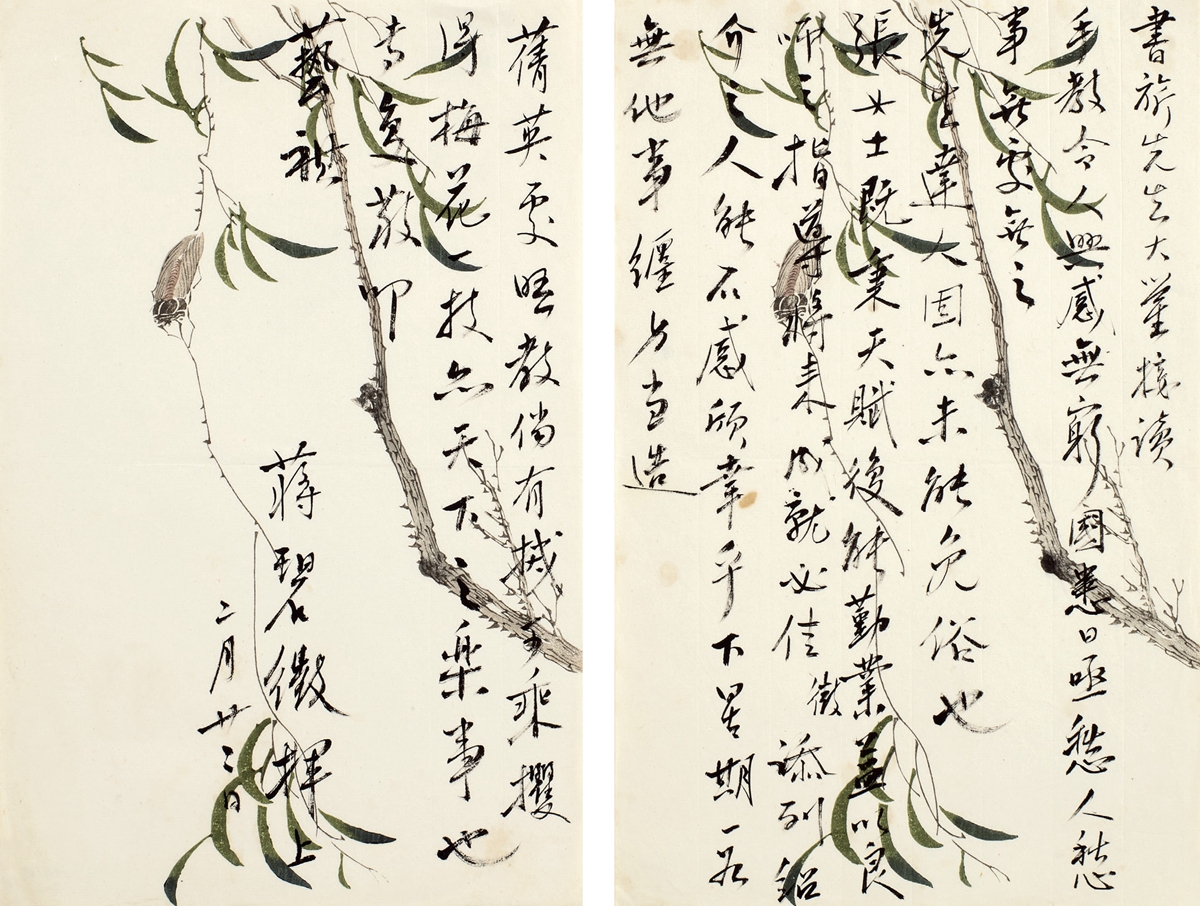 書旂先生大鑒接讀
手教令人興感無窮國患日亟愁人愁
事無處無之
先生達人固亦未能免俗也
張女士既秉天賦後能勤業益以良
師之指導將來成就必佳微添列紹
介之人能不感頌幸乎下星期一若
無他事纏身當造
蒨英處晤教倘有機可乘攫
得梅花一技亦天下之樂事也
專復敬叩
藝祺
蔣碧微拜上
二月廿二日